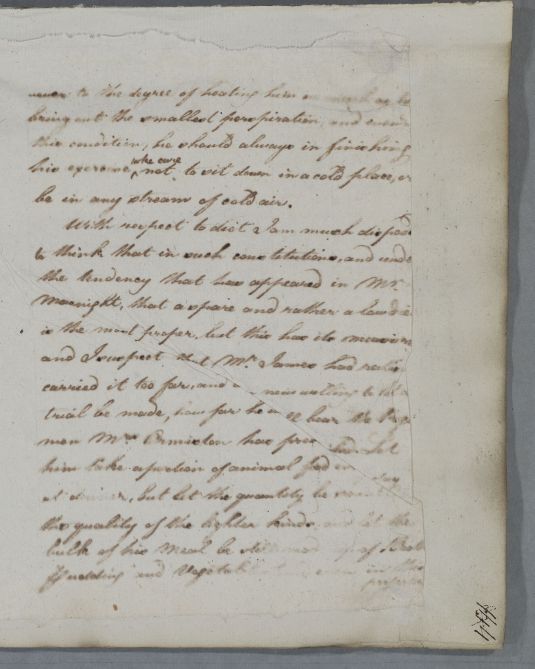 never to the degree of heating him so much as to
bring out the smallest perspiration, and even
this condition, he should always in finishing
his exercise take care not to sit down in a cold place, or
be in any stream of cold air.
With respect to diet I am much dispos
to think that in such constitutions, and unde
the tendency that has appeared in Mr.
Macnight, that a spare and rather a low die
is the most proper, but this has its measure
and I suspect that Mr. James had really
carried it too far, and a new willing to let a
trial be made, how far he will bear the
men Mr. Ormiston has pres Let
him take a portion of animal food day
at dinner, but let the quantity be
the quality of the lighter kinds, and let the
bulk of his meal be still made up of Broth
Pudding and Vegetab even in the